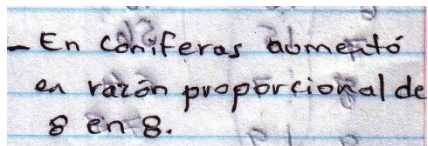 - En coniferas aumentó
en razón proporcional de
8 en 8.